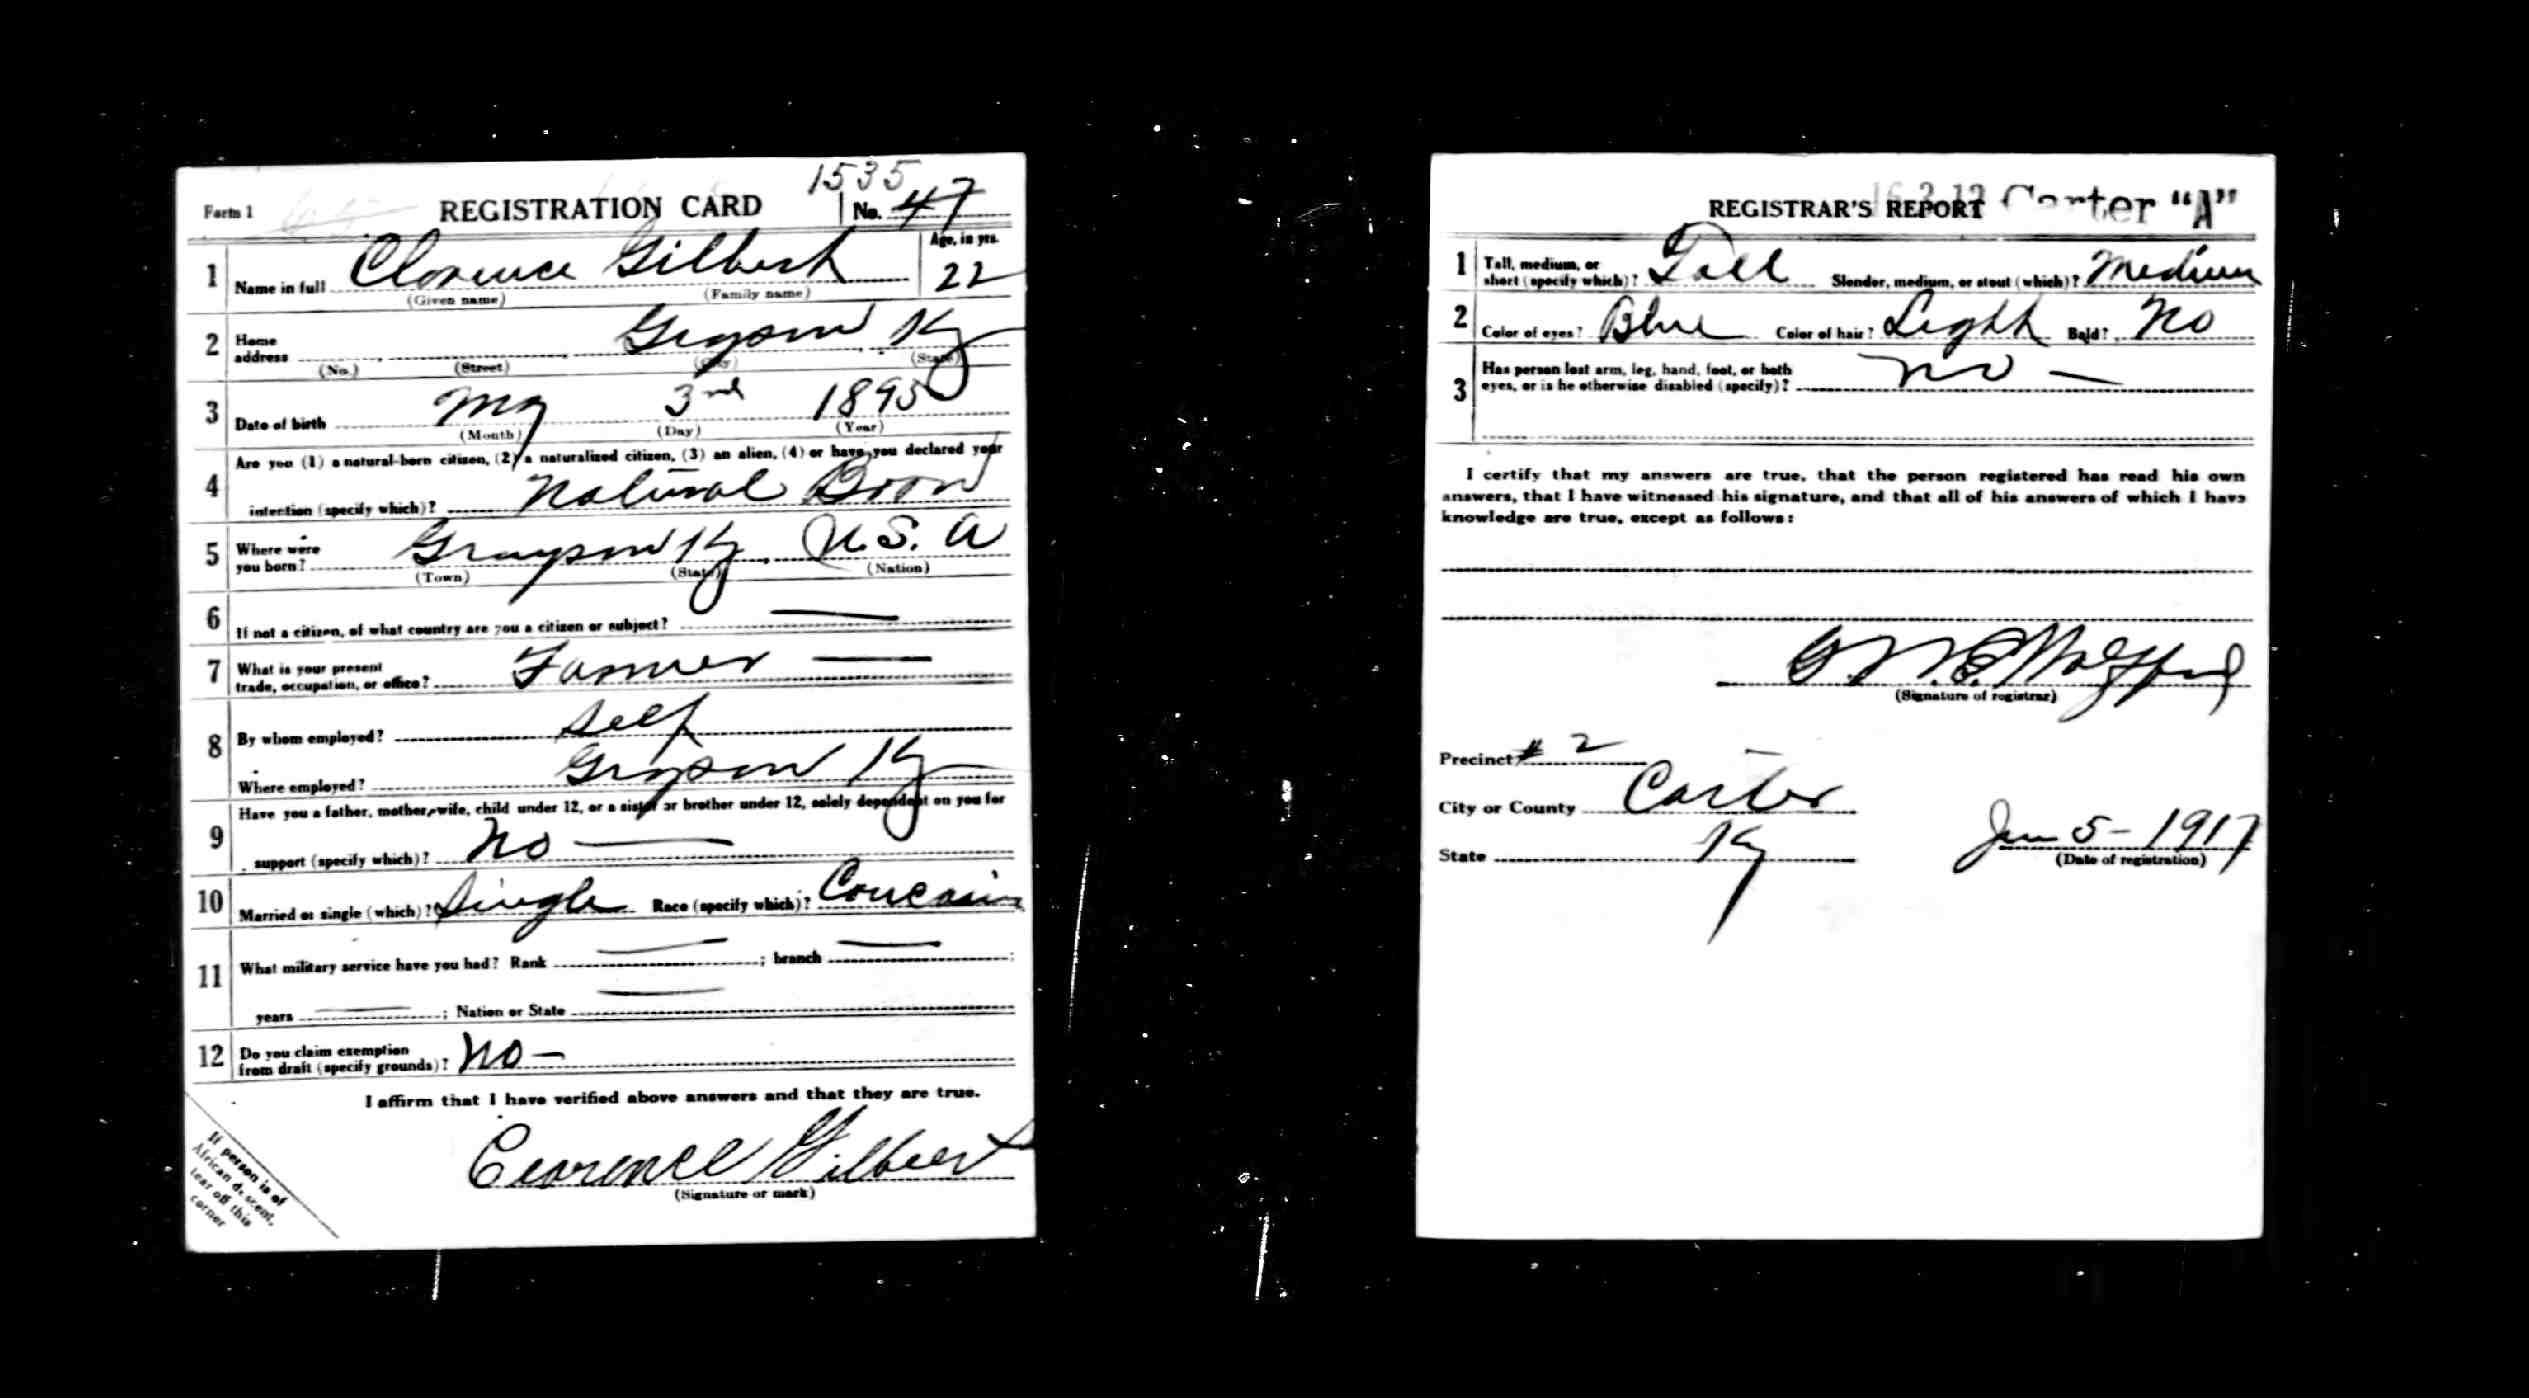 1535
Form 1 REGISTRATION CARD No. 47
1 Name in full Clarence Gilbert Age, in yrs. 22
(Given name) (Family name)
2 Home address Grayson Ky
(No.) (Street) (City) (State)
3 Date of birth May 3rd 1895
(Month) (Day) (Year)
4 Are you (1) a natural-born citizen, (2) a naturalized citizen, (3) an alien, (4) or have you declared your
intention (specify which)? Natural Born
5 Where were you born? Grayson Ky, U.S. A
(Town) (State) (Nation)
6 If not a citizen, of what country are you a citizen or subject? —
7 What is your present trade, occupation, or office? Farmer —
8 By whom employed? Self
Where employed? Grayson Ky
9 Have you a father, mother, wife, child under 12, or a sister or brother under 12, solely dependent on you for
support (specify which)? No —
10 Married or single (which)? Single Race (specify which)? Caucasian
11 What military service have you had? Rank — ; branch — ;
years — ; Nation or State —
12 Do you claim exemption from draft (specify grounds)? No —
I affirm that I have verified above answers and that they are true.
Clarence Gilbert
(Signature or mark)
If person is of
African descent,
tear off this
corner
REGISTRAR'S REPORT 16 2 12 Carter "A"
1 Tall, medium, or short (specify which)? Tall Slender, medium, or stout (which)? Medium
2 Color of eyes? Blue Color of hair? Light Bald? No
3 Has person lost arm, leg, hand, foot, or both
eyes, or is he otherwise disabled (specify)? No —
I certify that my answers are true, that the person registered has read his own
answers, that I have witnessed his signature, and that all of his answers of which I have
knowledge are true, except as follows:
(Signature of registrar)
Precinct # 2
City or County Carter
State Ky Jun 5 - 1917
(Date of registration)